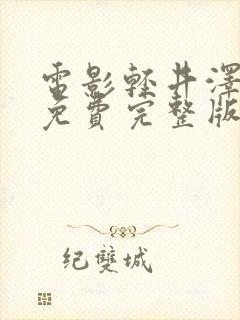 電影軽井澤
免費完整版
纪雙城